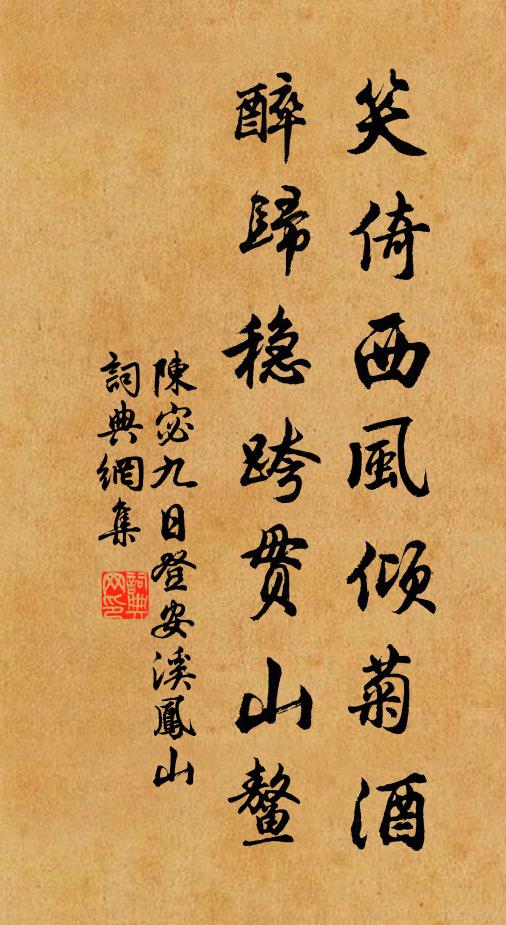 笑倚西風傾菊酒
醉歸穩跨貫山鰲
陳宓九日登安溪鳳山
詞典網集
詞典網印